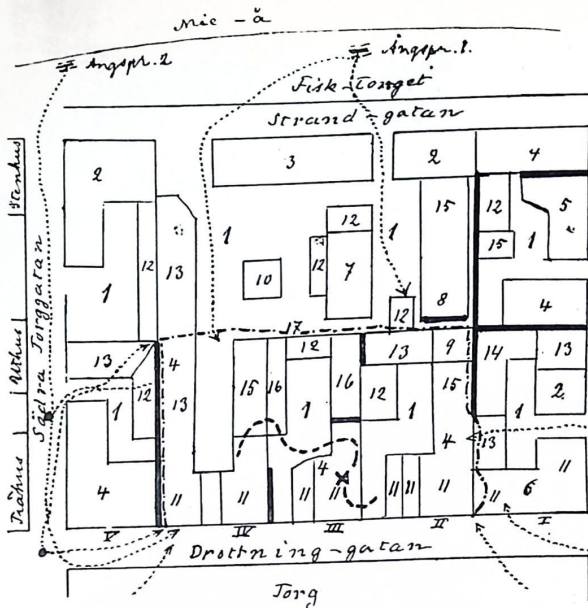 Nic - å
Ångspr. 2
Ångspr. 1.
Fisk-Torget
Strand-gatan
Stenhus
Uthus
Trähus
Södra Torggatan
2 3 2 4
12 15 12 5
1 13 1 12 1 15 1
12 10 12 7
12 8 4
17
13 4 12 13 9 14 13
15 16 16 15
1 12 13 1 12 1 1 2
4 13
4 11 11 11 4 11 11 11 11 11 6 11
V IV III II I
Drottning-gatan
Torg